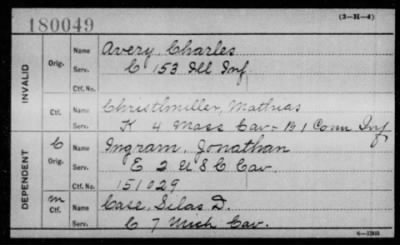 180049
(3-H-4)
INVALID
Orig.
Name Avery, Charles
Serv. C 153 Ill Inf
Ctf. No.
Ctf.
Name Christlmiller, Mathias
Serv. K 4 Mass Cav - B 1 Conn Inf
DEPENDENT
C
Orig.
Name Ingram, Jonathan
Serv. E 2 U S C Cav.
Ctf. No. 151029
m
Ctf.
Name Case, Silas D.
Serv. C 7 Mich Cav.